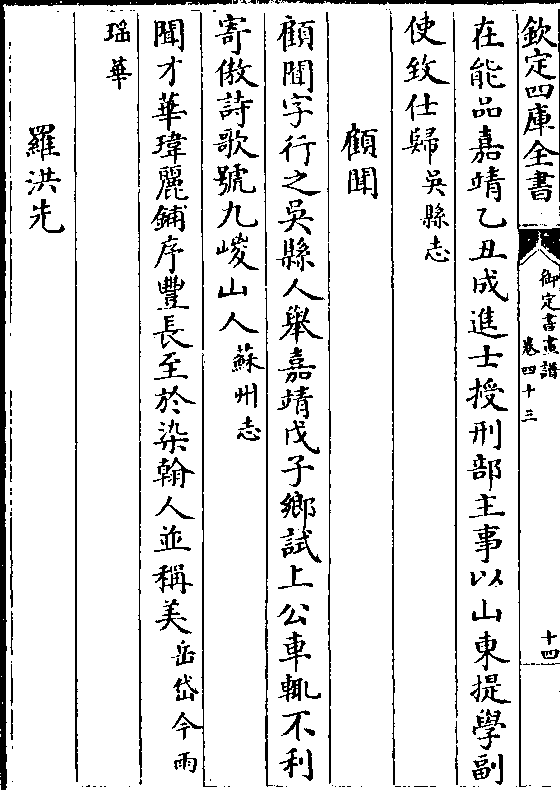 欽定四庫全書
御定書畫譜
卷四十三
十四
在能品嘉靖乙丑成進士授刑部主事以山東提學副
使致仕歸吳縣志
顧聞
顧聞字行之吳縣人舉嘉靖戊子鄉試上公車輒不利
寄傲詩歌號九嵕山人蘇州志
聞才華瑋麗鋪序豐長至於染翰人並稱美岳岱今雨
瑶華
羅洪先